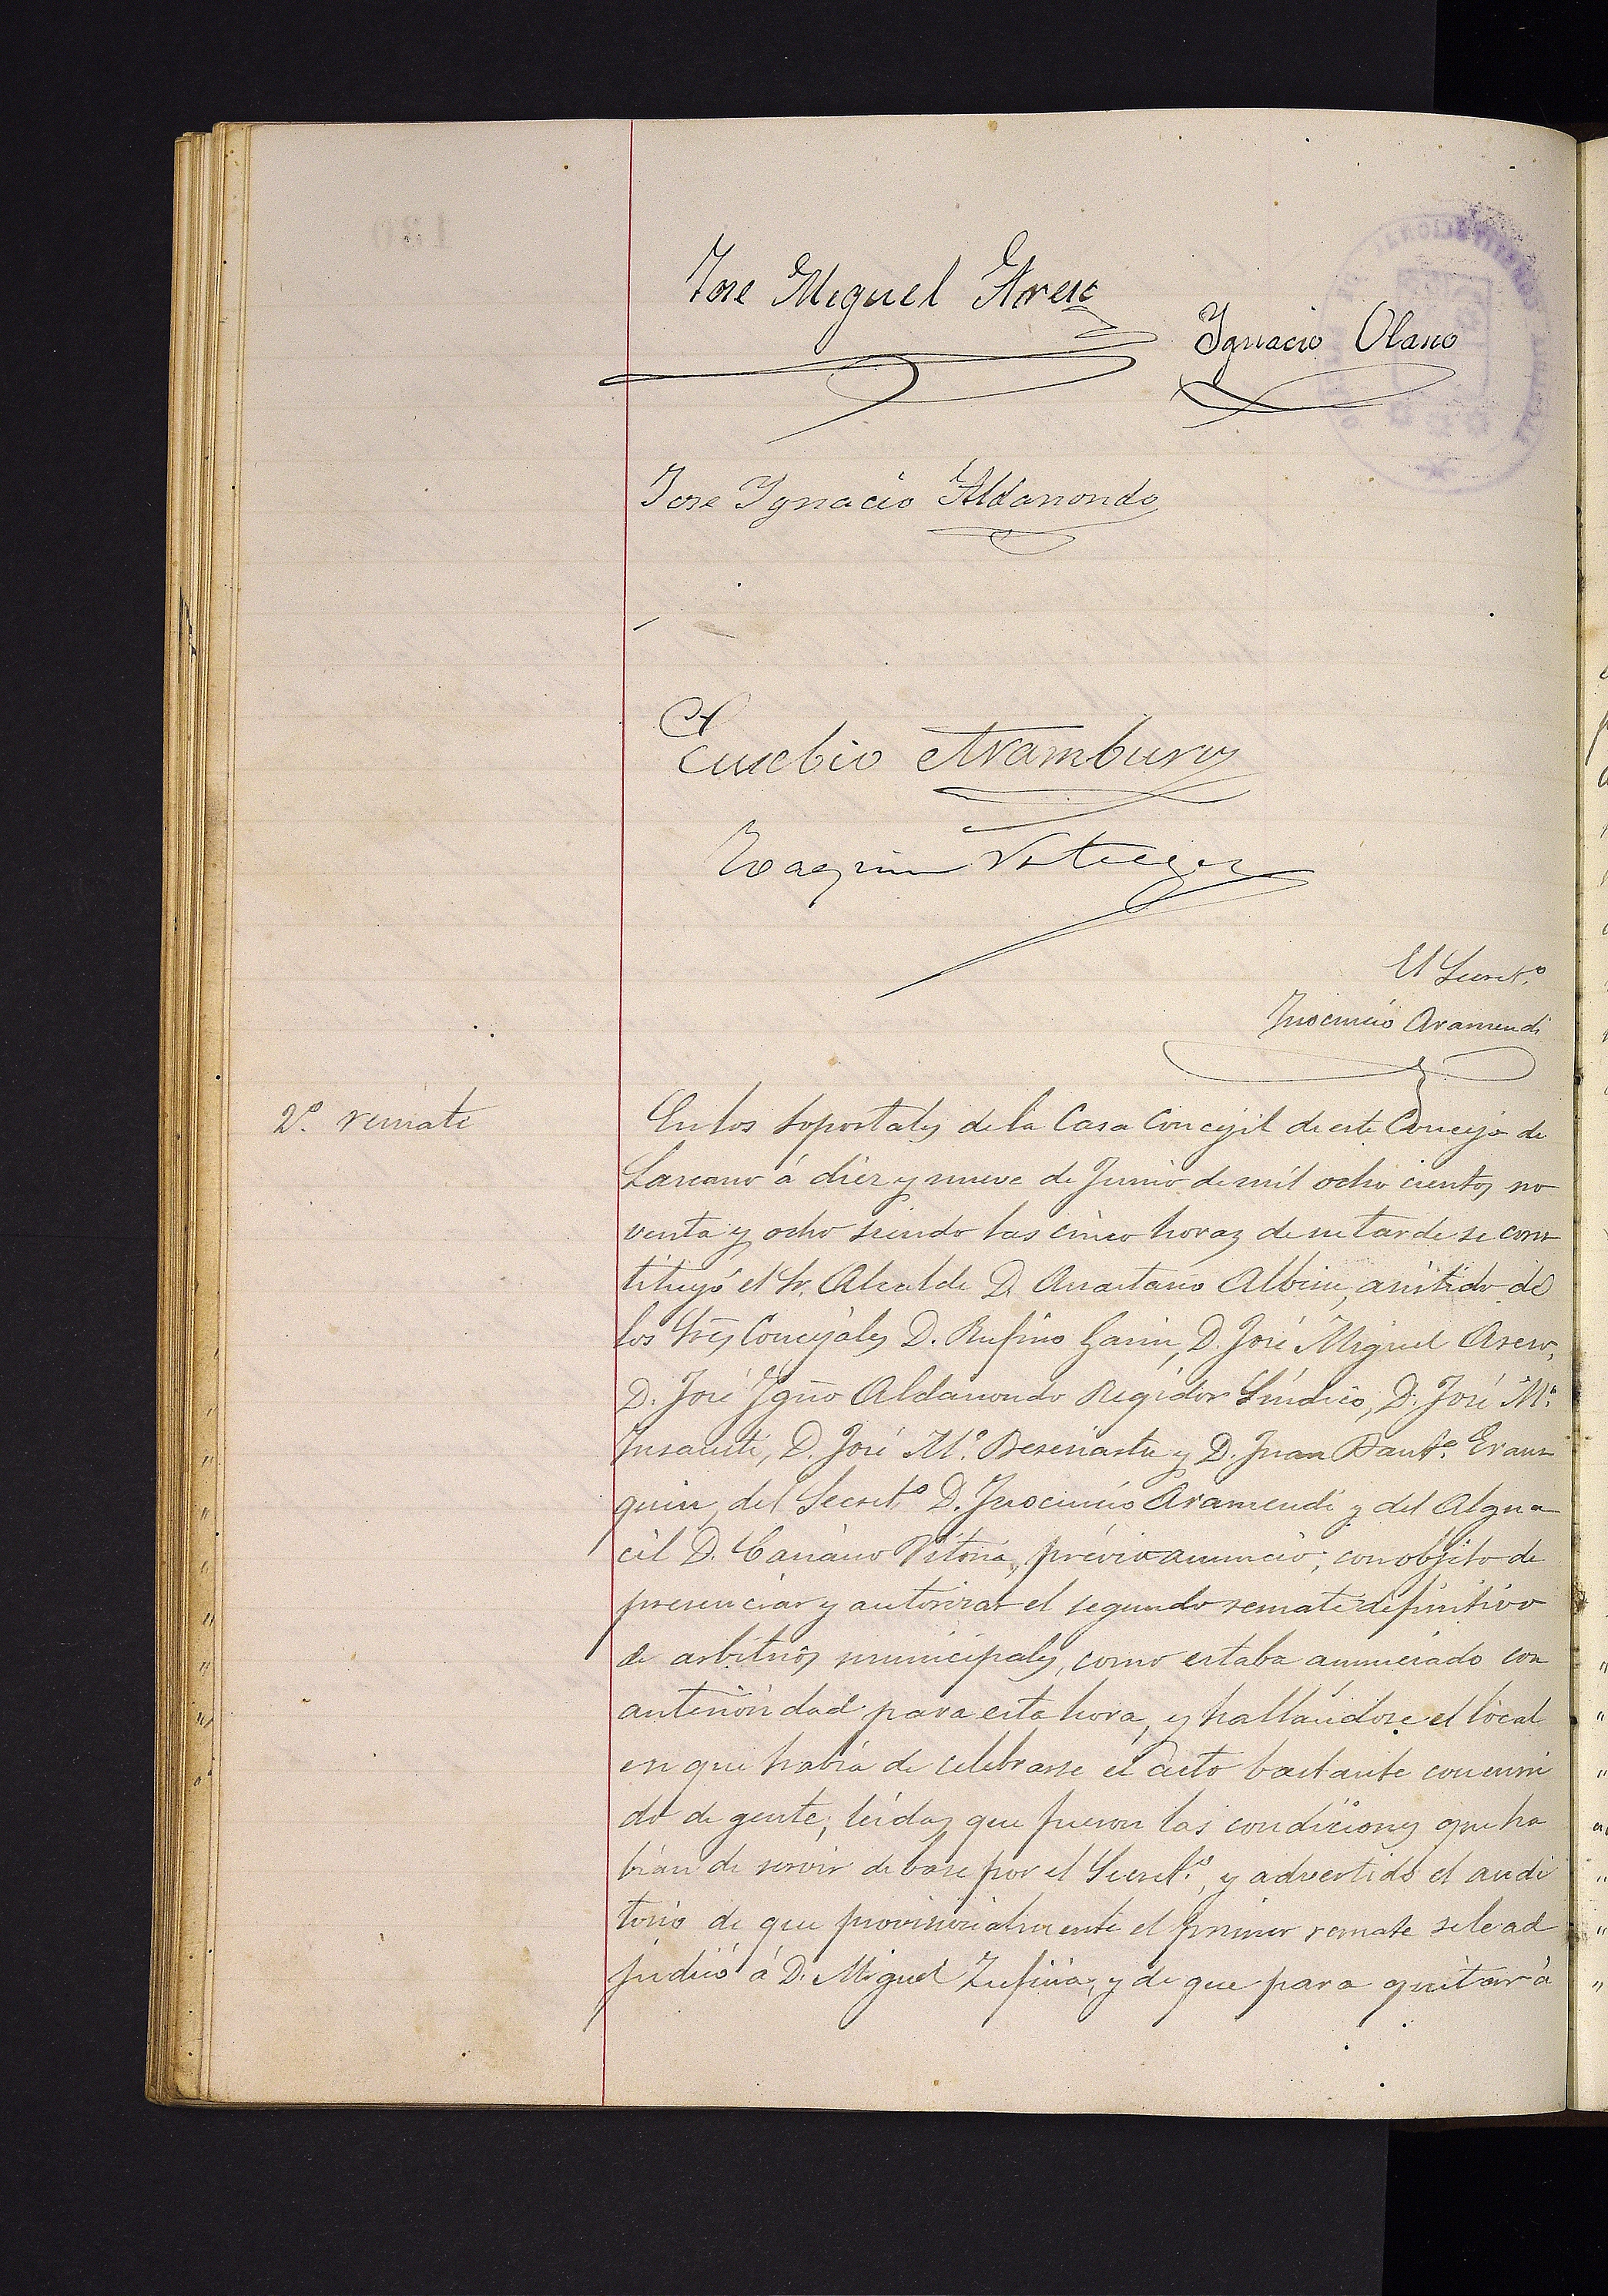 Jose Miguel Areso
Ignacio Olano
Jose Ygnacio Aldanondo
Eusebio Aramburu
Joaquin
El Secret.º
Inocencio Aramendi
2.º remate
En los soportales de la Casa Concejil de este Concejo de
Lazcano á diez y nueve de Junio de mil ocho cientos no
venta y ocho siendo las cinco horas de su tarde se cons
tituyó el Sr. Alcalde D. Anastasio Albisu, asistido de
los Sres Concejales D. Rufino Garin, D. José Miguel Areso,
D. José Ygnº Aldanondo Regidor Síndico, D. José M.ª
Insausti, D. José M.ª Beseriastu y D. Juan Baut.ª Eraus
quin, del Secret.º D. Inocencio Aramendi y del Algua
cil D. Casiano Vitoria, prévio anuncio, con objeto de
presenciar y autorizar el segundo remate definitivo
de arbitrios municipales, como estaba anunciado con
anterioridad para esta hora, y hallándose el local
en que había de celebrarse el acto bastante concurri
do de gente, leidas que fueron las condiciones que ha
bían de servir de base por el Secret.º, y advertido el audi
torio de que provisionalmente el primer remate se le ad
judicó á D. Miguel Zufiria, y de que para quitar á